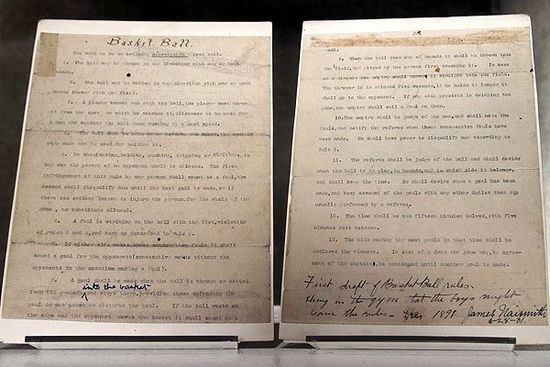 Basket Ball
The ball to be an ordinary Association foot ball.
1. The ball may be thrown in any direction with one or both
hands.
2. The ball may be batted in any direction with one or both
hands (never with the fist).
3. A player cannot run with the ball, the player must throw
it from the spot on which he catches it, allowance to be made for
a man who catches the ball when running at a good speed.
4. The ball must be held
must not be used for holding it.
5. No shouldering, holding, pushing, tripping or striking, in
any way the person of an opponent shall be allowed. The first
infringement of this rule by any person shall count as a foul, the
second shall disqualify him until the next goal is made, or if
there was evident intent to injure the person, for the whole of the
game, no substitute allowed.
6. A foul is striking at the ball with the fist, violation
of rules 3 and 4, and such as described in rule 5.
7. If either side makes three consecutive fouls, it shall
count a goal for the opponents (consecutive means without the
opponents in the meantime making a foul).
8. A goal shall be made when the ball is thrown or batted
into the basket
from the grounds and stays there, providing those defending the
goal do not touch or disturb the goal. If the ball rests on the
edge and the opponent moves the basket it shall count as a
goal.
9. When the ball goes out of bounds it shall be thrown into
the field, and played by the person first touching it. In case
of a dispute the umpire shall throw it straight into the field.
The thrower in is allowed five seconds, if he holds it longer it
shall go to the opponent. If any side persists in delaying the
game, the umpire shall call a foul on them.
10. The umpire shall be judge of the men, and shall note the
fouls, and notify the referee when three consecutive fouls have
been made. He shall have power to disqualify men according to
Rule 5.
11. The referee shall be judge of the ball and shall decide
when the ball is in play, in bounds, and to which side it belongs,
and shall keep the time. He shall decide when a goal has been
made, and keep account of the goals with any other duties that are
usually performed by a referee.
12. The time shall be two fifteen minutes halves, with five
minutes rest between.
13. The side making the most goals in that time shall be
declared the winners. In case of a draw the game may, by agree-
ment of the captains, be continued until another goal is made.
First draft of Basket Ball rules.
Hung in the gym that the boys might
learn the rules - Dec 1891 James Naismith
6-28-31.